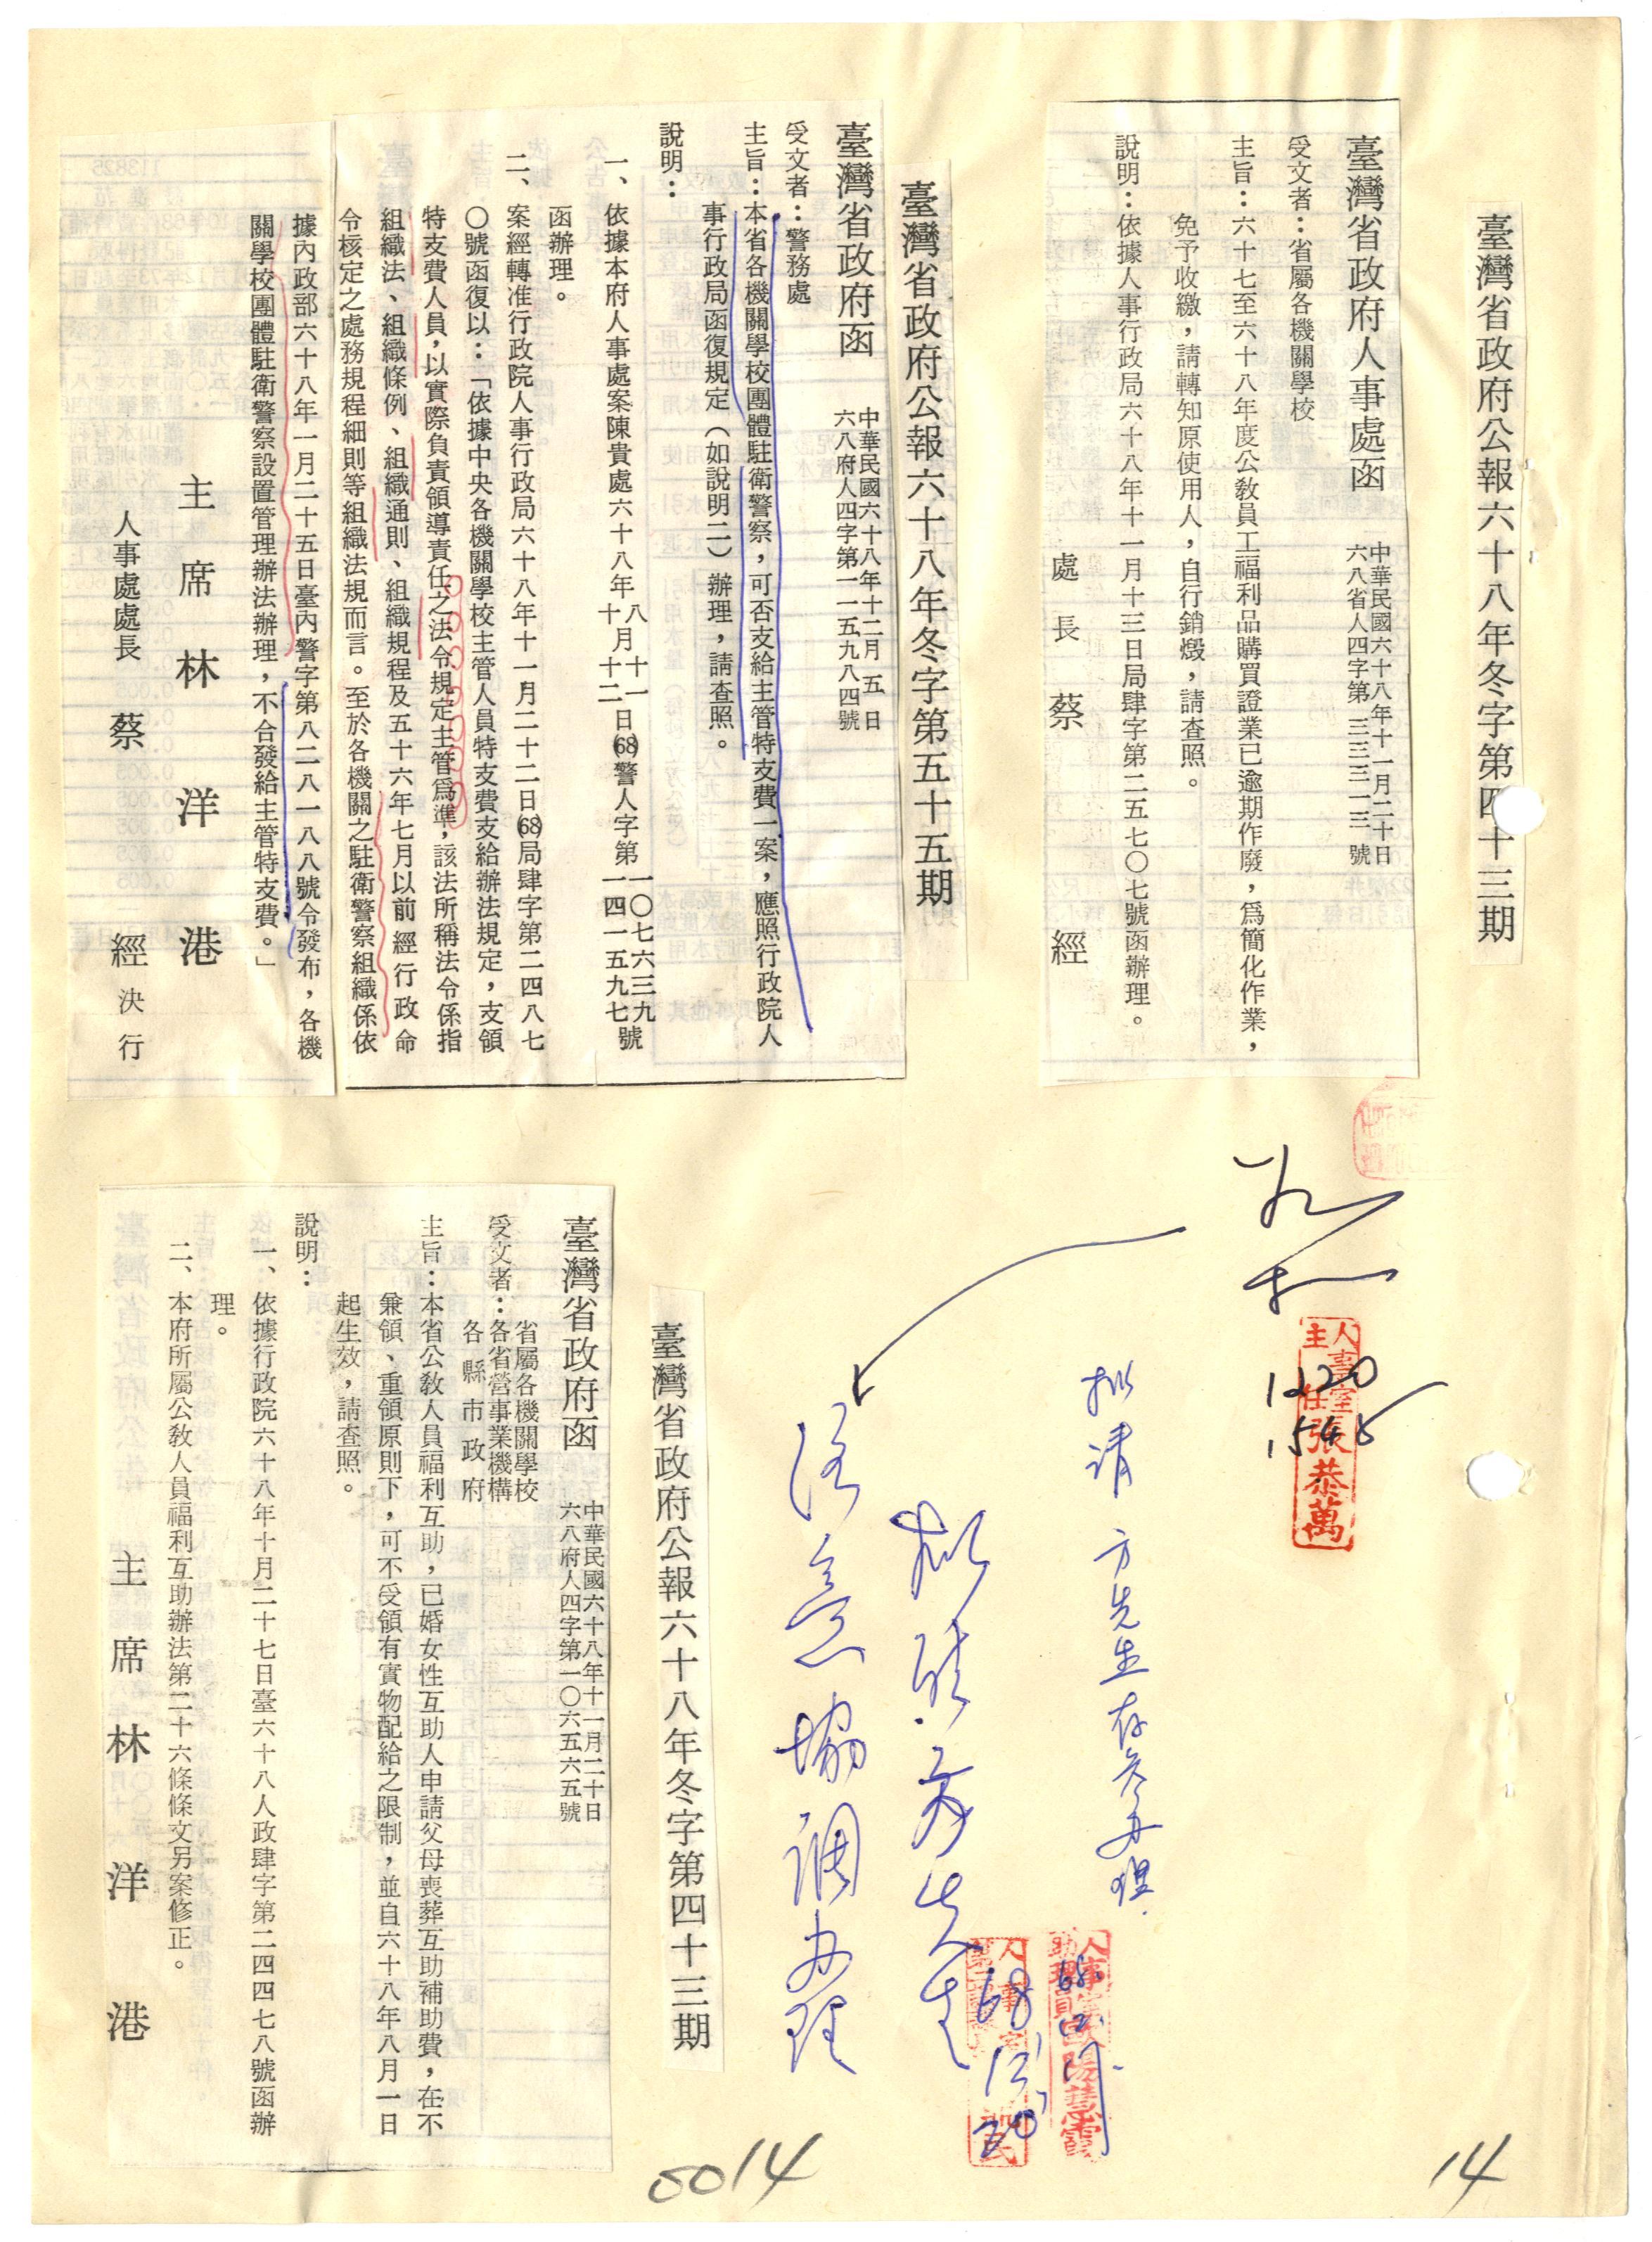 臺灣省政府公報六十八年冬字第四十三期
臺灣省政府人事處函
中華民國六十八年十一月二十日
六八省人四字第三三三一三號
受文者：省屬各機關學校
主旨：六十七至六十八年度公教員工福利品購買證業已逾期作廢，爲簡化作業，
免予收繳，請轉知原使用人，自行銷燬，請查照。
說明：依據人事行政局六十八年十一月十三日局肆字第二五七〇七號函辦理。
處長 蔡 經
臺灣省政府公報六十八年冬字第五十五期
臺灣省政府函
中華民國六十八年十二月五日
六八府人四字第一一五九八四號
受文者：警務處
主旨：本省各機關學校團體駐衛警察，可否支給主管特支費一案，應照行政院人
事行政局函復規定（如說明二）辦理，請查照。
說明：
一、依據本府人事處案陳貴處六十八年
八月十一
十月十二
日(68)警人字第
一〇七六三九
一四一五九七
號
函辦理。
二、案經轉准行政院人事行政局六十八年十一月二十二日(68)局肆字第二四八七
〇號函復以：「依據中央各機關學校主管人員特支費支給辦法規定，支領
特支費人員，以實際負責領導責任之法令規定主管爲準，該法所稱法令係指
組織法、組織條例、組織通則、組織規程及五十六年七月以前經行政命
令核定之處務規程細則等組織法規而言。至於各機關之駐衛警察組織係依
據內政部六十八年一月二十五日臺內警字第八二八一八八號令發布，各機
關學校團體駐衛警察設置管理辦法辦理，不合發給主管特支費。」
主席 林洋港
人事處處長 蔡 經 決行
人事室主任張恭萬
1220
1545
擬請 方先生存參辦理.
擬請.方先生
注意協調办理
68 12/20
臺灣省政府公報六十八年冬字第四十三期
臺灣省政府函
中華民國六十八年十一月二十日
六八府人四字第一〇六五六五號
受文者：
省屬各機關學校
各省營事業機構
各縣市政府
主旨：本省公教人員福利互助，已婚女性互助人申請父母喪葬互助補助費，在不
兼領、重領原則下，可不受領有實物配給之限制，並自六十八年八月一日
起生效，請查照。
說明：
一、依據行政院六十八年十月二十七日臺六十八人政肆字第二四四七八號函辦
理。
二、本府所屬公教人員福利互助辦法第二十六條條文另案修正。
主席 林洋港
0014
14